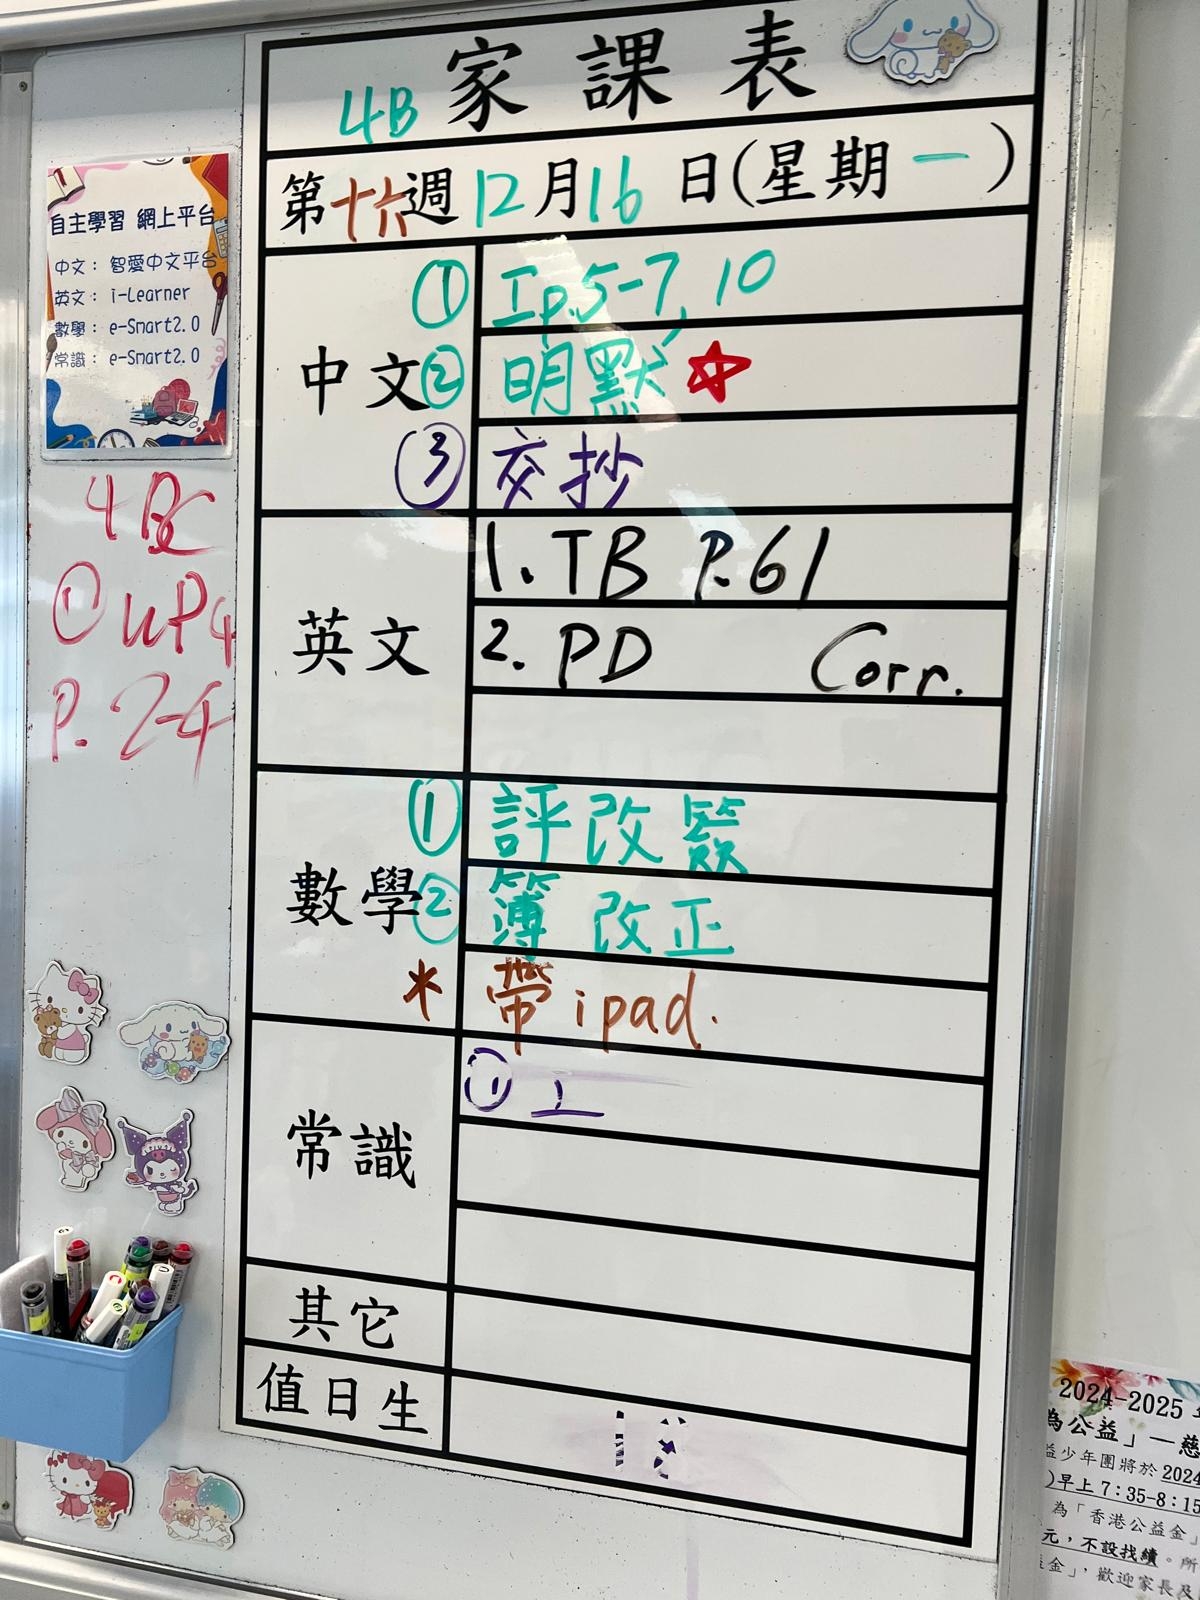 家課表
4B
第十六週 12月16日(星期一)
中文
① 工p.5-7, 10
② 明默☆
③ 交抄
英文
1. TB P.61
2. PD Corr.
數學
① 評改簽
② 簿改正
* 帶ipad.
常識
① 工
其它
值日生
18
自主學習 網上平台
中文： 智愛中文平台
英文： i-Learner
數學： e-Smart2.0
常識： e-Smart2.0
4BC
① UP4
P.2-4
2024-2025
為公益」—慈
益少年團將於 2024
)早上 7：35-8：15
為「香港公益金」
元，不設找續。所
益金」，歡迎家長及